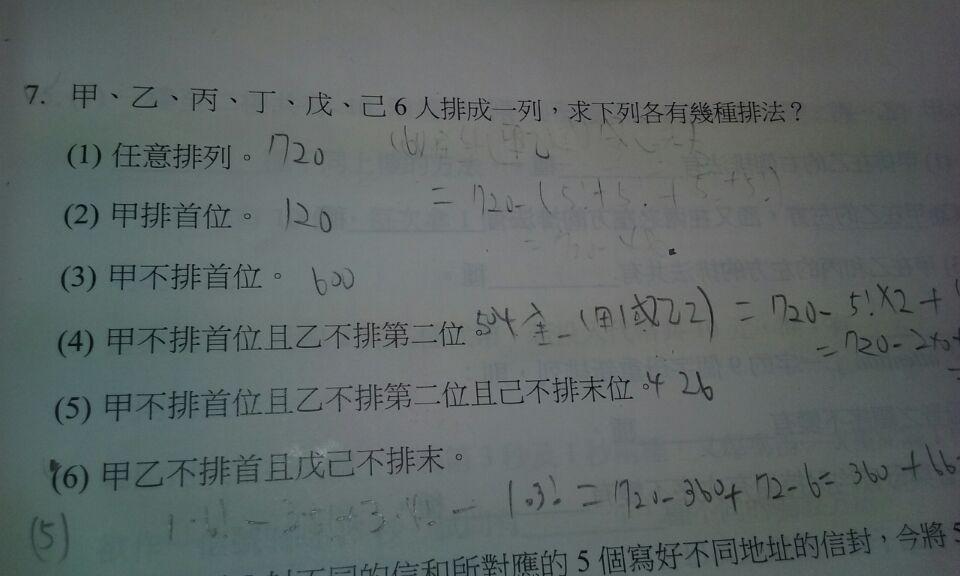 7. 甲、乙、丙、丁、戊、己 6 人排成一列，求下列各有幾種排法？
(1) 任意排列。 720
(6)
= 720-(5!+5!+5!+5!)
(2) 甲排首位。 120
(3) 甲不排首位。 600
(4) 甲不排首位且乙不排第二位。504 全-(甲1或乙2) = 720-5!×2+
= 720-240+
(5) 甲不排首位且乙不排第二位且己不排末位。426
(6) 甲乙不排首且戊己不排末。
(5) 1·6! - 3·5! + 3·4! - 1·3! = 720-360+72-6 = 360+66
封不同的信和所對應的 5 個寫好不同地址的信封，今將 5